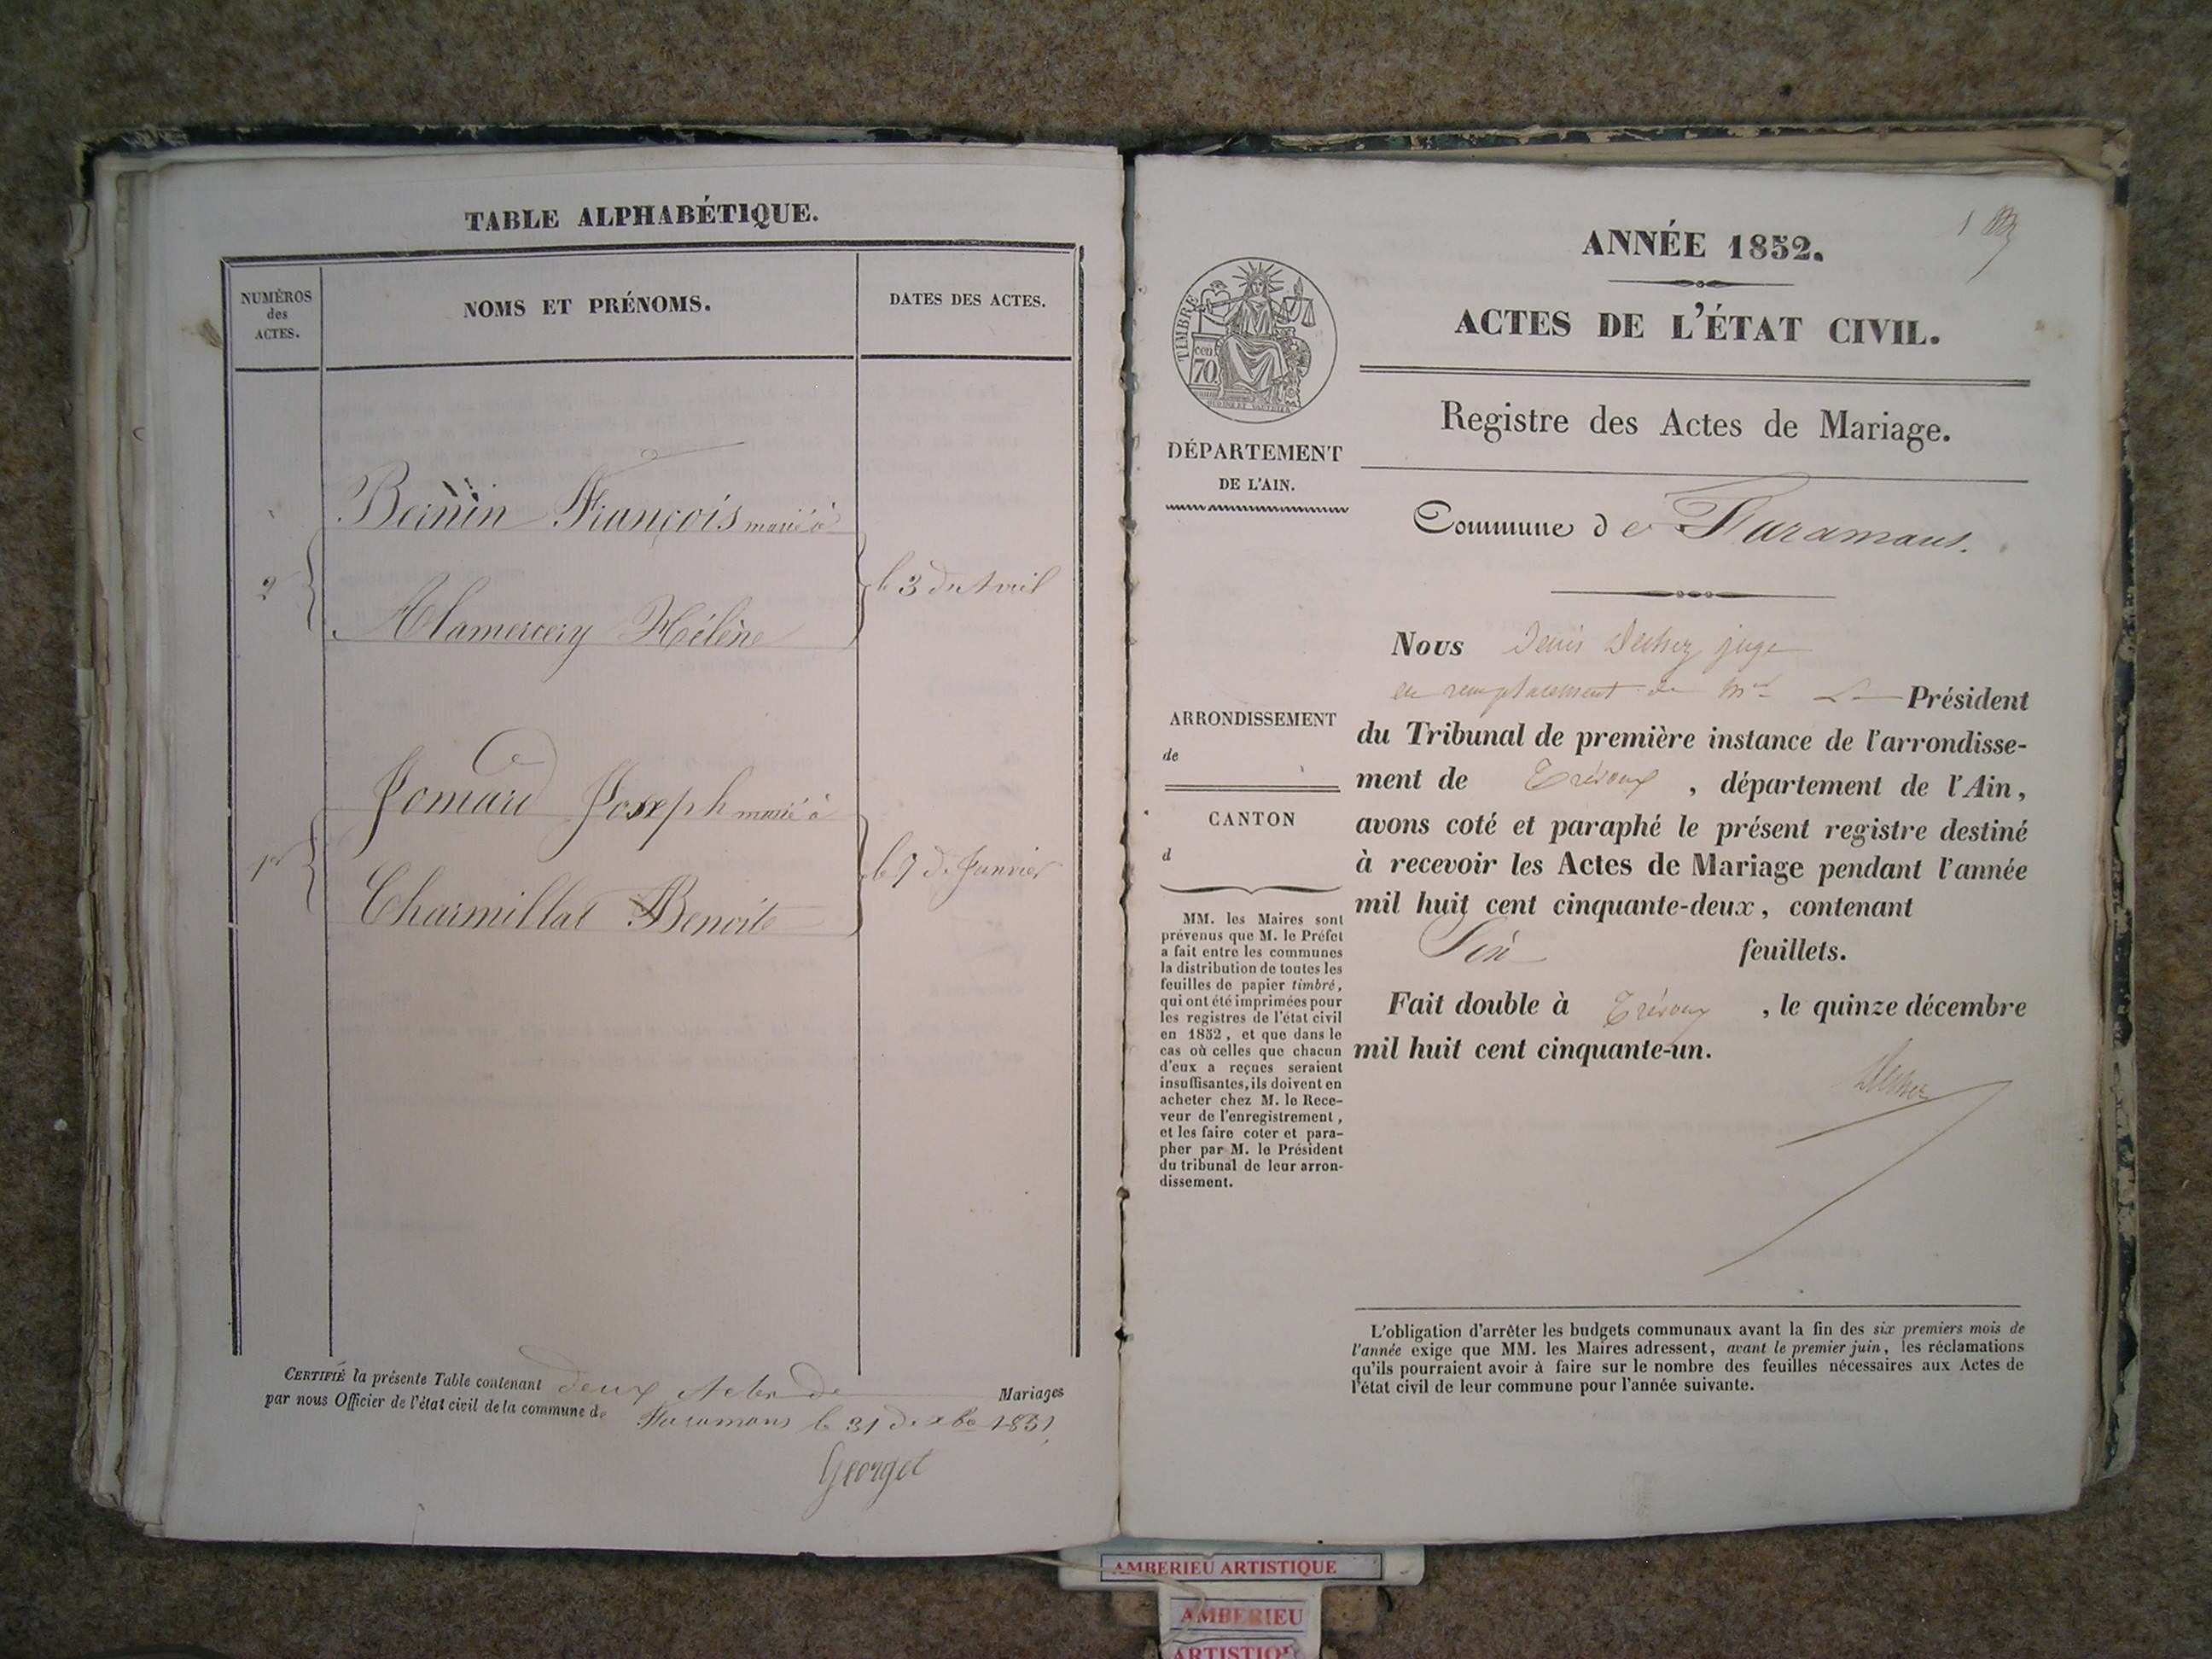 TABLE ALPHABÉTIQUE.
NUMÉROS
des
ACTES.
NOMS ET PRÉNOMS.
DATES DES ACTES.
Bernin François marié à
2
le 3 du Avril
Alamercery Hélène
Jomard Joseph marié à
1er
le 7 de Janvier
Charmillat Benoite
CERTIFIÉ la présente Table contenant deux Actes de Mariages
par nous Officier de l'état civil de la commune de Faramans le 31 de xbre 1851
Georget
1
ANNÉE 1852.
ACTES DE L'ÉTAT CIVIL.
Registre des Actes de Mariage.
Commune de Faramans.
TIMBRE
cen
70.
DÉPARTEMENT
DE L'AIN.
ARRONDISSEMENT
de
CANTON
d
MM. les Maires sont
prévenus que M. le Préfet
a fait entre les communes
la distribution de toutes les
feuilles de papier timbré,
qui ont été imprimées pour
les registres de l'état civil
en 1852, et que dans le
cas où celles que chacun
d'eux a reçues seraient
insuffisantes, ils doivent en
acheter chez M. le Rece-
veur de l'enregistrement,
et les faire coter et para-
pher par M. le Président
du tribunal de leur arron-
dissement.
Nous Denis juge
en remplacement de Mr Le Président
du Tribunal de première instance de l'arrondisse-
ment de Trévoux, département de l'Ain,
avons coté et paraphé le présent registre destiné
à recevoir les Actes de Mariage pendant l'année
mil huit cent cinquante-deux, contenant
feuillets.
Fait double à Trévoux, le quinze décembre
mil huit cent cinquante-un.
L'obligation d'arrêter les budgets communaux avant la fin des six premiers mois de
l'année exige que MM. les Maires adressent, avant le premier juin, les réclamations
qu'ils pourraient avoir à faire sur le nombre des feuilles nécessaires aux Actes de
l'état civil de leur commune pour l'année suivante.
AMBERIEU ARTISTIQUE
AMBERIEU
ARTISTIQUE